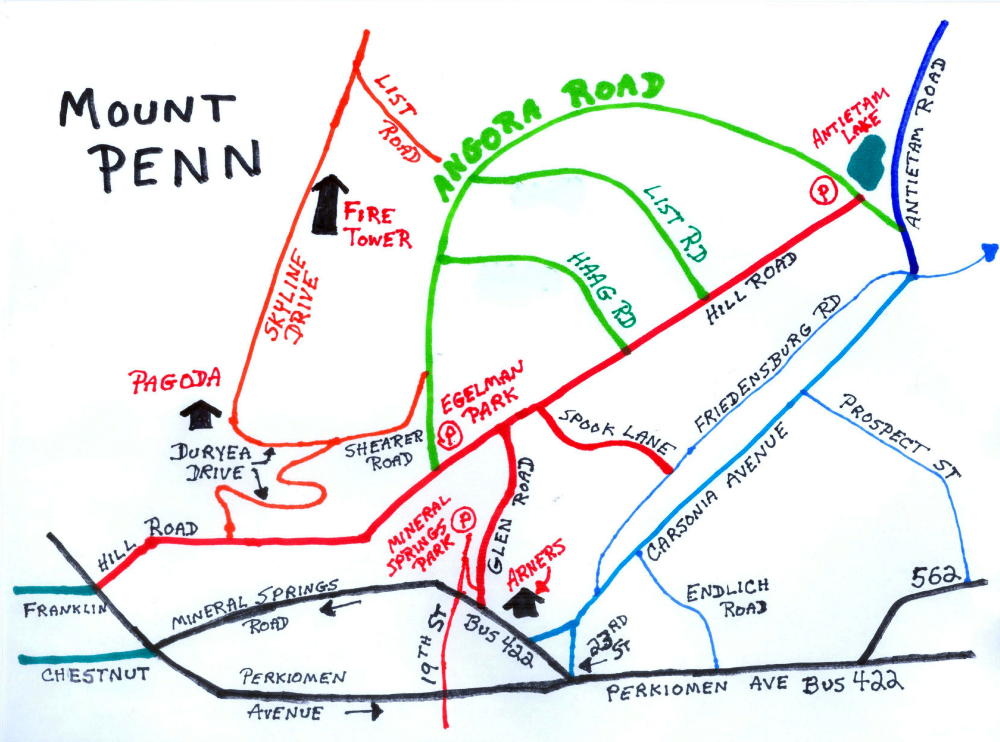 MOUNT
PENN
LIST
ROAD
ANGORA ROAD
ANTIETAM
LAKE
ANTIETAM ROAD
P
FIRE
TOWER
SKYLINE
DRIVE
LIST RD
HAAG RD
HILL ROAD
PAGODA
DURYEA
DRIVE
SHEARER
ROAD
EGELMAN
PARK
P
SPOOK LANE
FRIEDENSBURG RD
CARSONIA AVENUE
PROSPECT ST
HILL ROAD
MINERAL
SPRINGS
PARK
P
GLEN ROAD
ARNERS
FRANKLIN
MINERAL SPRINGS
ROAD
19TH ST
BUS 422
23RD
ST
ENDLICH
ROAD
562
CHESTNUT
PERKIOMEN
AVENUE
PERKIOMEN AVE BUS 422